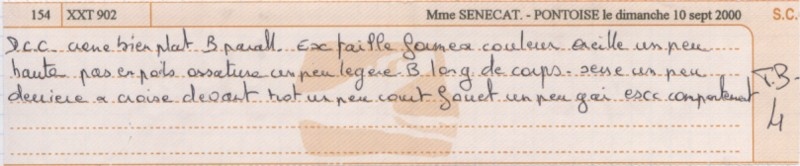 154 XXT 902 Mme SENECAT. - PONTOISE le dimanche 10 sept 2000 S.C.
D.c.c crane bien plat B parall. Exc taille forme x couleur oreille un peu
haute pas en poils ossature un peu legere B long de corps. serre un peu
derriere x croise devant trot un peu court fouet un peu gai exc comportement
T.B
4